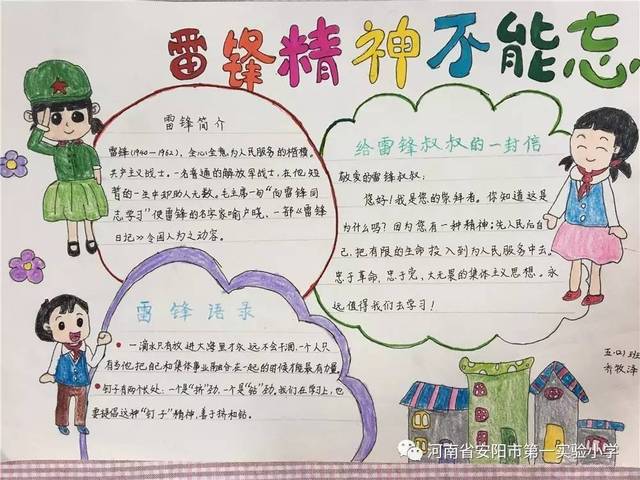 雷锋精神不能忘
雷锋简介
雷锋(1940-1962),全心全意为人民服务的楷模,
共产主义战士,一名普通的解放军战士,在他短
暂的一生中却助人无数。毛主席一句“向雷锋同
志学习”使雷锋的名字家喻户晓,一部《雷锋
日记》令国人为之动容。
给雷锋叔叔的一封信
敬爱的雷锋叔叔:
您好!我是您的崇拜者。你知道这是
为什么吗?因为您有一种精神:先人民后自
己,把有限的生命投入到为人民服务中去。
忠于革命,忠于党,大无畏的集体主义思想。永
远值得我们去学习!
雷锋语录
一滴水只有放进大海里才永远不会干涸,一个人只
有当他把自己和集体事业融合在一起的时候才能最有力量。
钉子有两个长处:一个是“挤”劲,一个是“钻”劲。我们在学习上,也
要提倡这种“钉子”精神,善于挤和钻。
五.(1)班
河南省安阳市第一实验小学